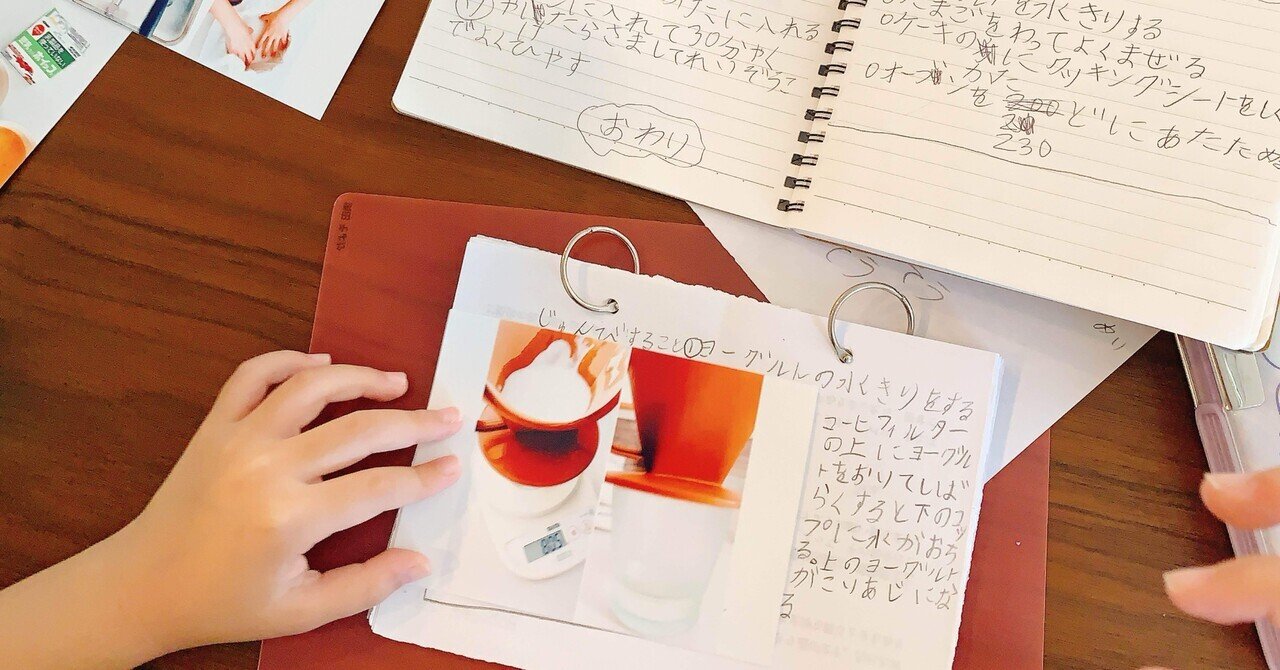 にに入れる
に入れて30分やく
やけたらさましてれいぞうこ
でよくひやす
おわり
を水きりする
○たまごをわってよくまぜる
○ケーキの
にクッキングシートをし
○オーブンを
どにあたため
230
じゅんびすること①ヨーグルトの水きりをする
コーヒフィルター
の上にヨーグル
トをおりてしば
らくすると下のコッ
プに水がおち
る。上のヨーグルト
がこりあじにな
る